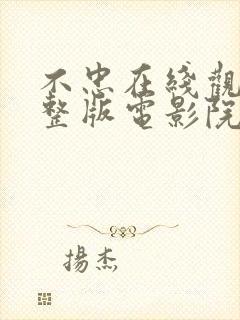 不忠在綫觀
整版電影院
揚杰